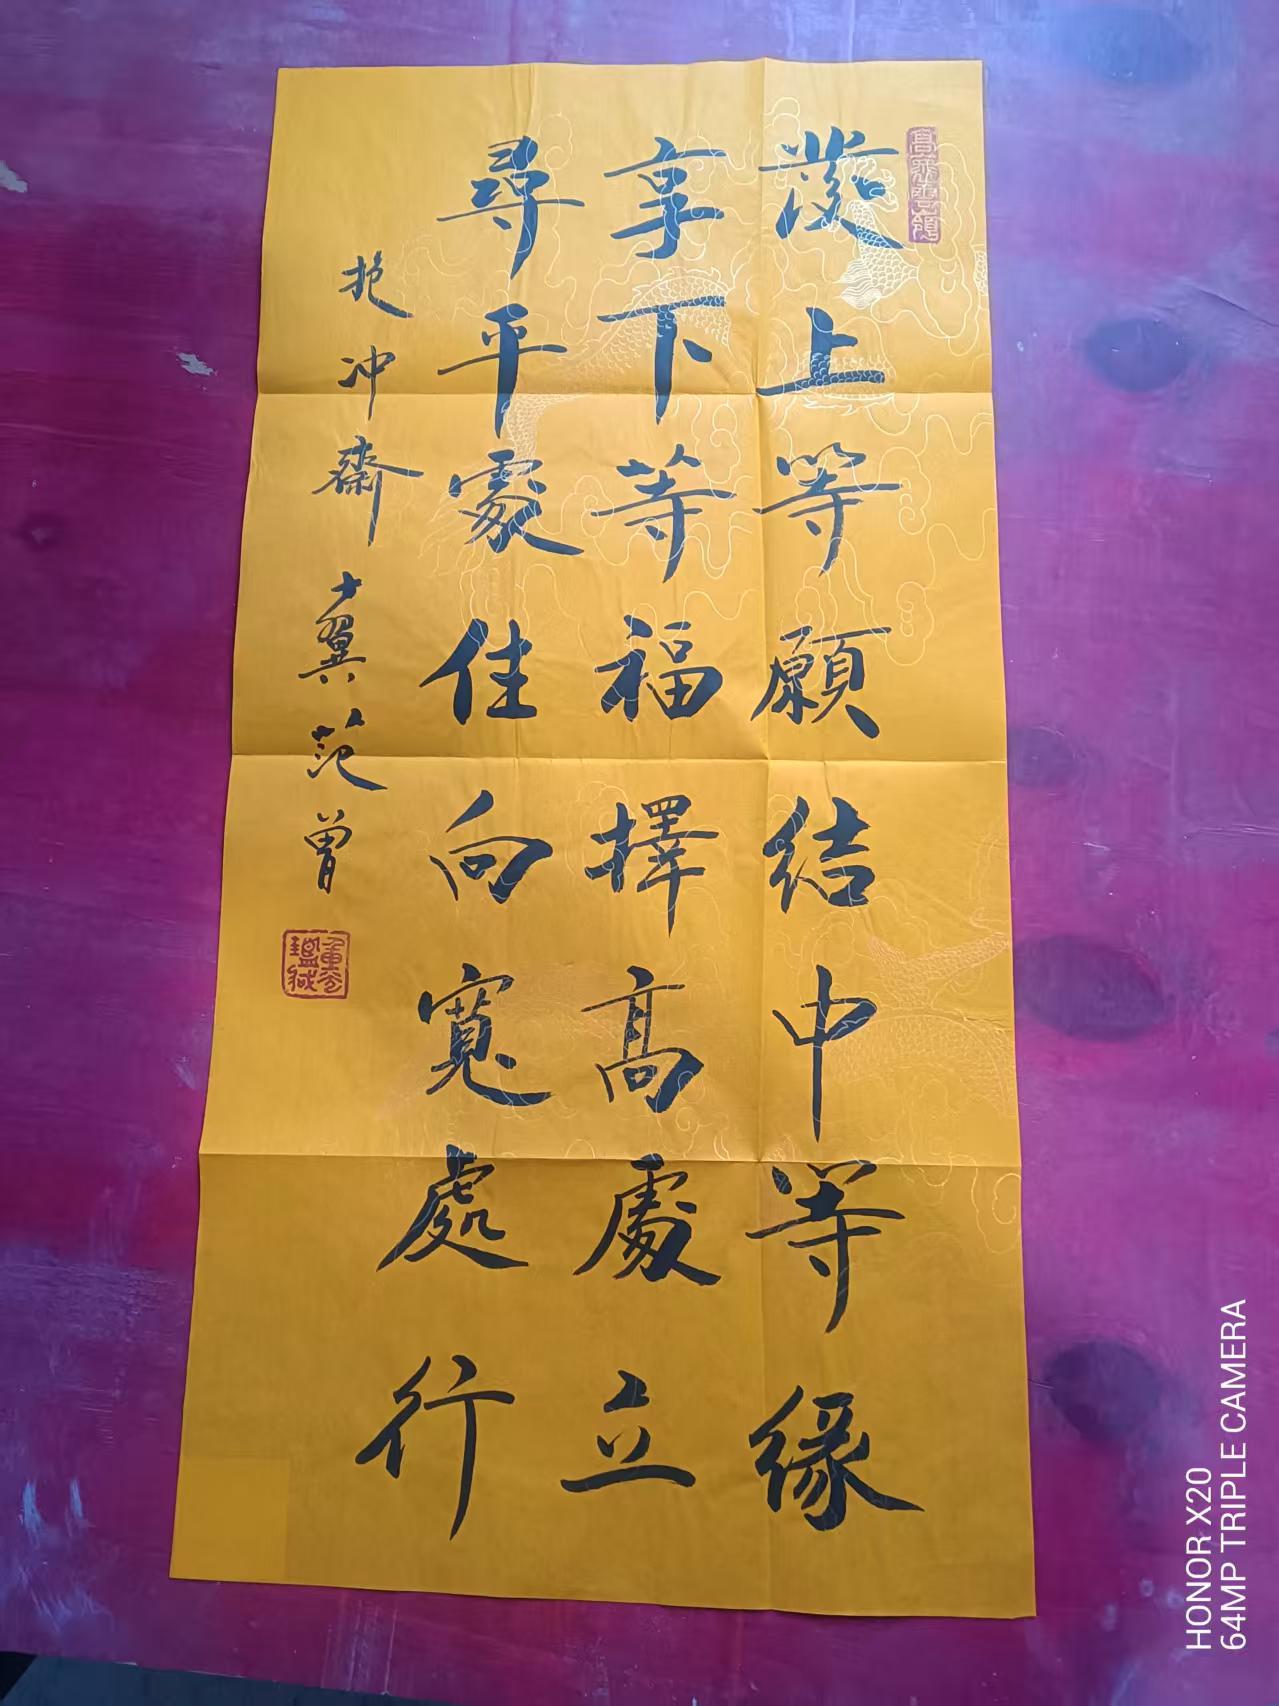 發上等願結中等緣
享下等福擇高處立
尋平處住向寬處行
抱冲齋十翼范曾
HONOR X20
64MP TRIPLE CAMERA